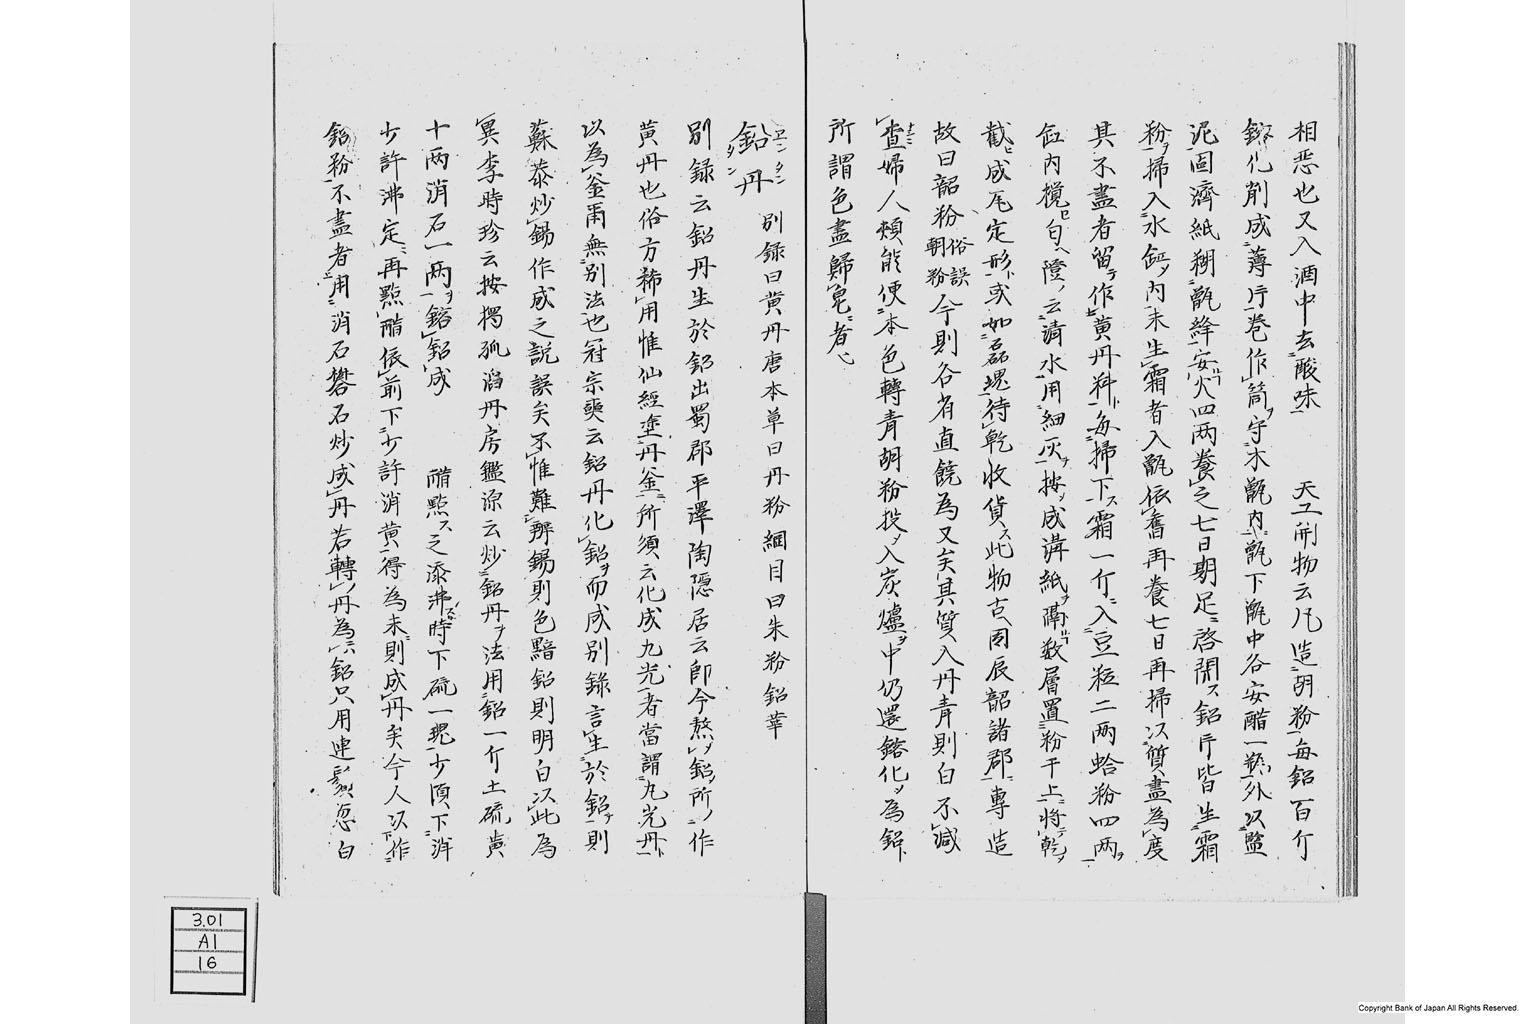 相惡也又入酒中去酸味　天工開物云凡造胡粉每鉛百斤
鎔化削成薄片卷作筒守木甑內甑下甑中各安醋一瓶外以鹽
泥固濟紙糊甑縫安火四兩養之七日期足啓開鉛片皆生霜
粉掃入水缸內未生霜者入甑依舊再養七日再掃以質盡為度
其不盡者留作黃丹料每掃下霜一斤入豆粒二兩蛤粉四兩
缸內攪勻澄云清水用細灰按成溝紙隔數層置粉于上將乾
截成瓦定形或如磊塊待乾收貨此物古因辰韶諸郡專造
故曰韶粉俗誤朝粉今則各省直饒為又矣其質入丹青則白不減
查婦人頰能便本色轉青胡粉投入炭爐中仍還鎔化為鉛
所謂色盡歸皂者
鉛丹　別錄曰黃丹唐本草曰丹粉綱目曰朱粉鉛華
ヱンタン
タン
別錄云鉛丹生於鉛出蜀郡平澤陶隱居云即今熬鉛所作
黃丹也俗方稀用惟仙經塗丹釜所須云化成九光者當謂九光丹
以為釜甭無別法也冠宗奭云鉛丹化鉛而成別錄言生於鉛則
蘇恭炒錫作成之說誤矣不惟難辨錫則色黯鉛則明白以此為
異李時珍云按獨孤滔丹房鑑源云炒鉛丹法用鉛一斤土硫黃
十兩消石一兩鎔鉛成　醋點之滾沸時下硫一塊少頃下消
少許沸定再點醋依前下少許消黃得為末則成丹矣今人以作
鉛粉不盡者用消石礬石炒成丹若轉丹為鉛只用連鬚葱白
3.01
A1
16
Copyright Bank of Japan All Rights Reserved.